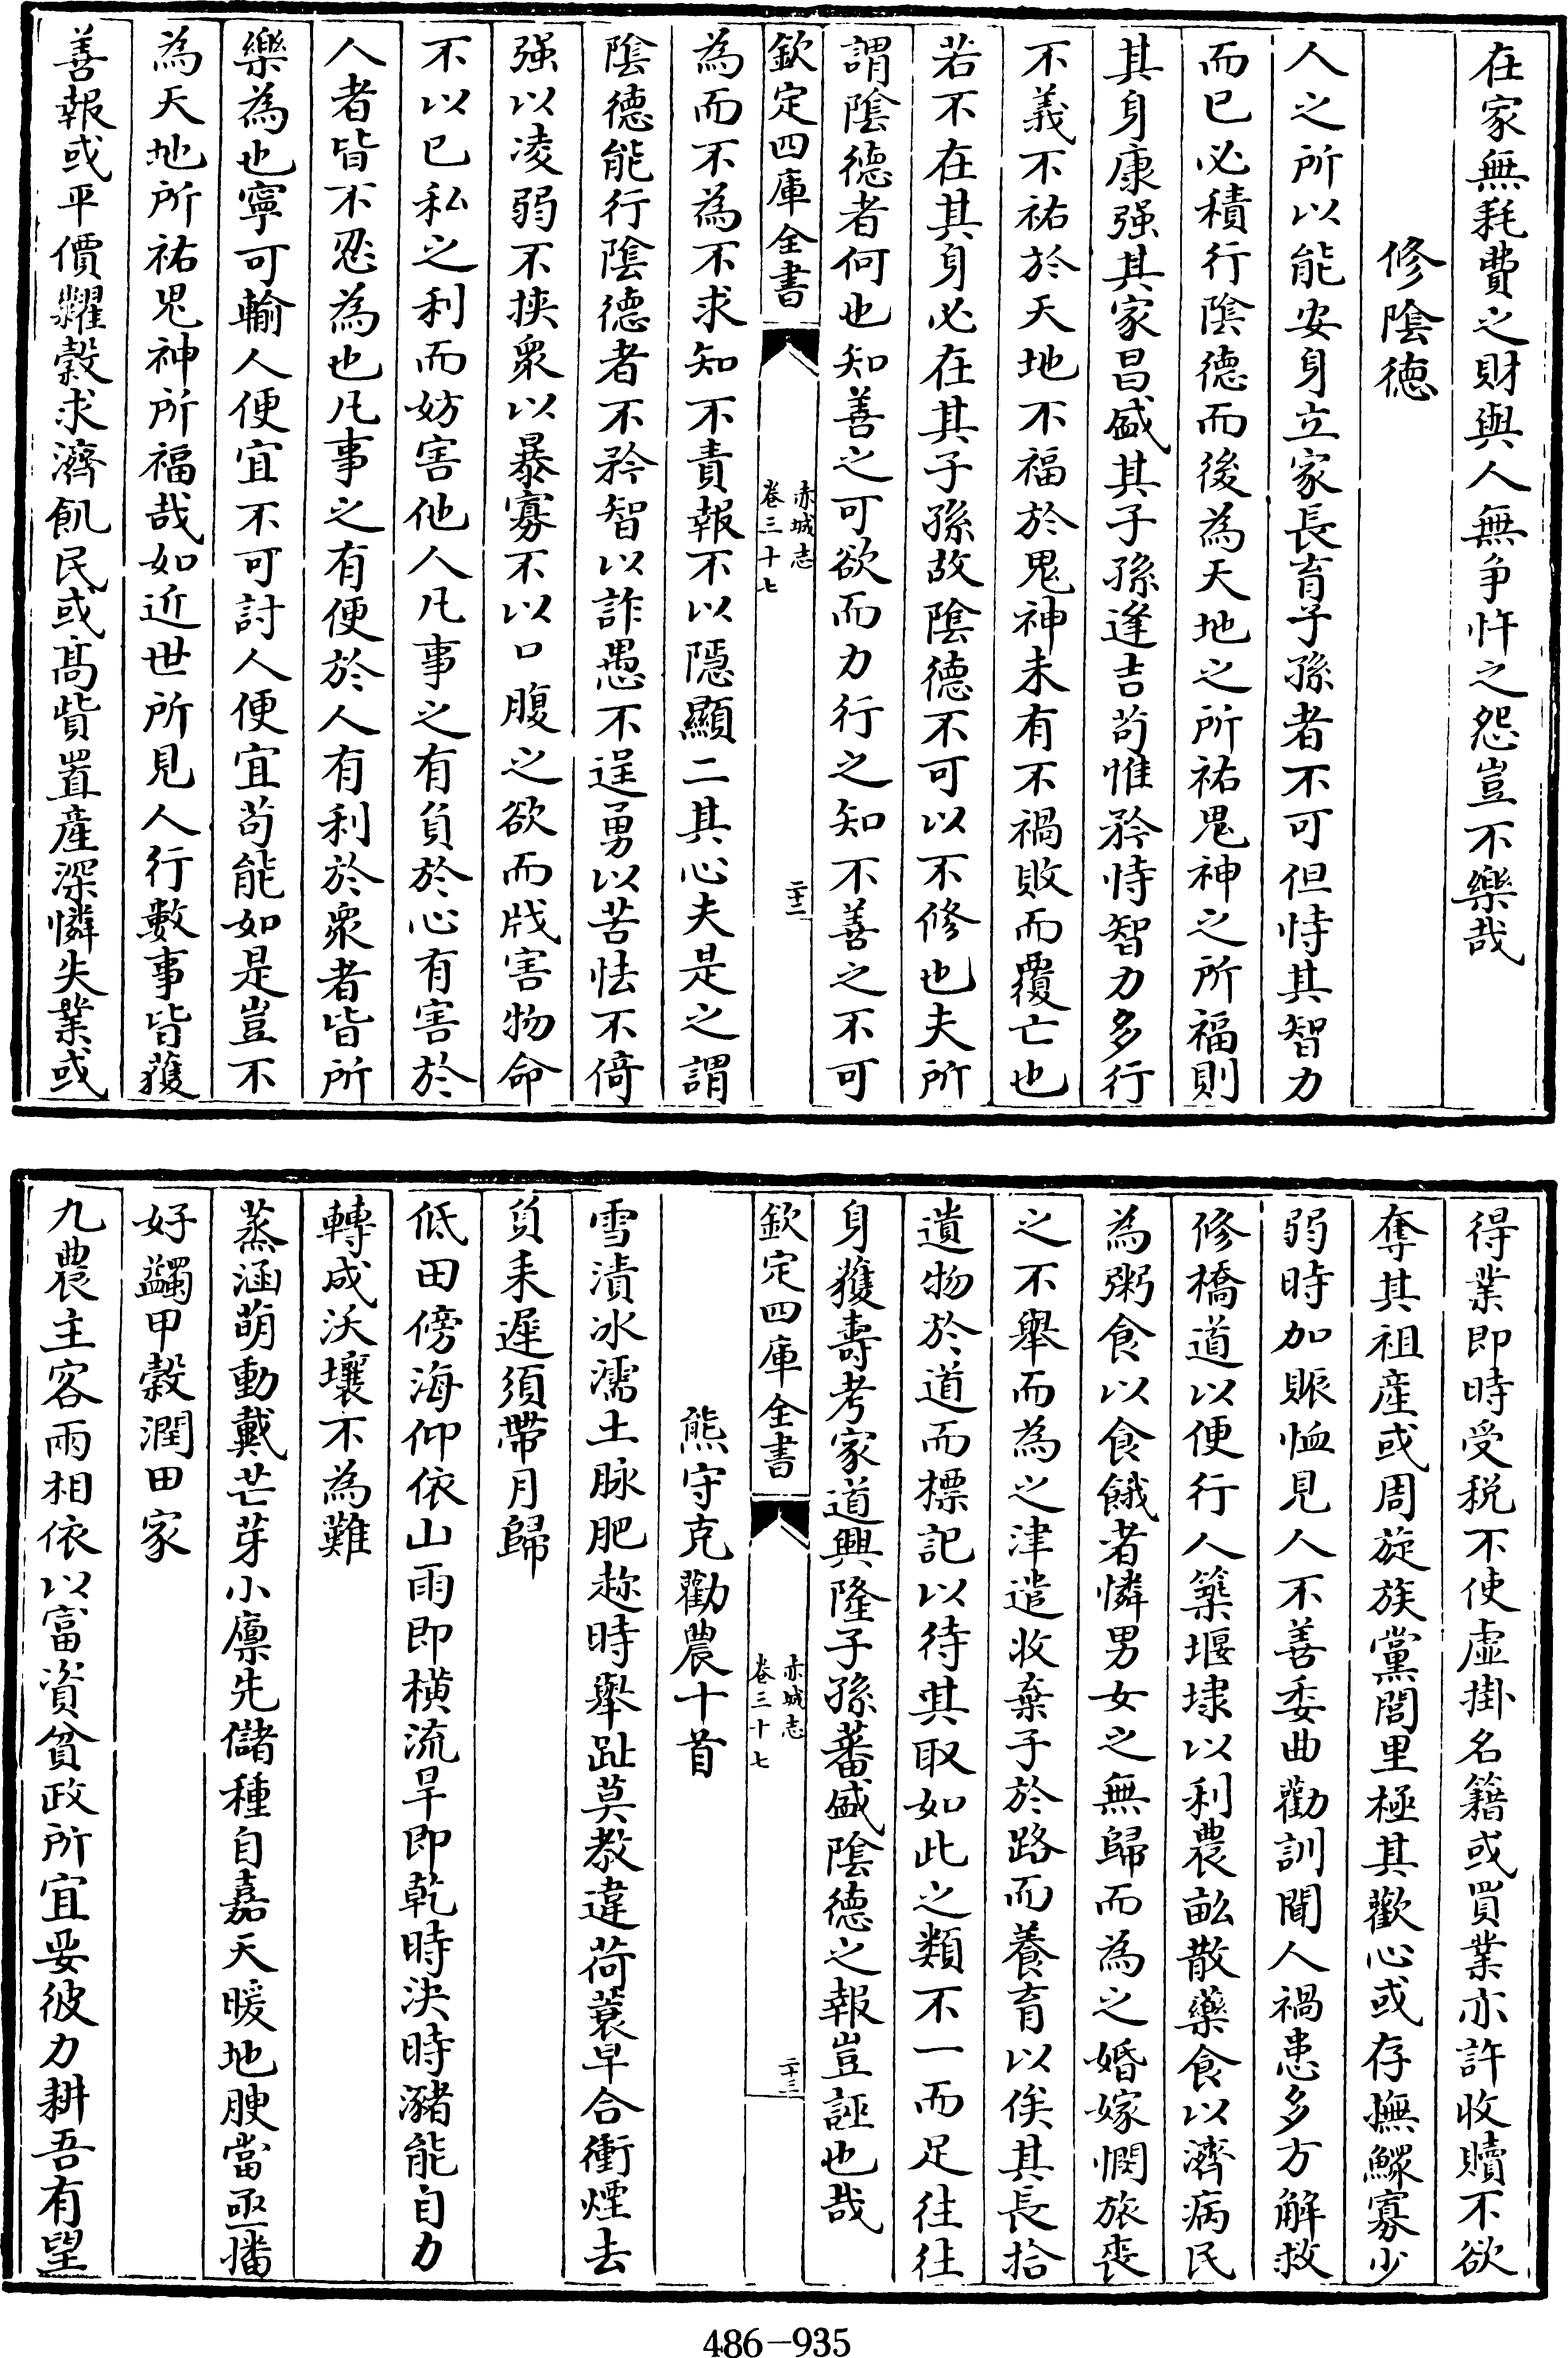 在家無耗費之財與人無争忤之怨豈不樂哉
修隂德
人之所以能安身立家長育子孫者不可但恃其智力
而已必積行隂德而後為天地之所祐鬼神之所福則
其身康强其家昌盛其子孫逢吉苟惟矜恃智力多行
不義不祐於天地不福於鬼神未有不禍敗而覆亡也
若不在其身必在其子孫故隂德不可以不修也夫所
謂隂德者何也知善之可欲而力行之知不善之不可
欽定四庫全書
赤城志
卷三十七
二十二
為而不為不求知不責報不以隱顯二其心夫是之謂
隂德能行隂德者不矜智以詐愚不逞勇以苦怯不倚
强以凌弱不挾衆以暴寡不以口腹之欲而戕害物命
不以已私之利而妨害他人凡事之有負於心有害於
人者皆不忍為也凡事之有便於人有利於衆者皆所
樂為也寧可輸人便宜不可討人便宜苟能如是豈不
為天地所祐鬼神所福哉如近世所見人行數事皆獲
善報或平價糶穀求濟飢民或髙貲置產深憐失業或
得業即時受税不使虚掛名籍或買業亦許收贖不欲
奪其祖產或周旋族黨閭里極其歡心或存撫鰥寡少
弱時加賑恤見人不善委曲勸訓聞人禍患多方解救
修橋道以便行人築堰埭以利農畝散藥食以濟病民
為粥食以食餓者憐男女之無歸而為之婚嫁憫旅喪
之不舉而為之津遣收棄子於路而養育以俟其長拾
遺物於道而標記以待其取如此之類不一而足往往
身獲壽考家道興隆子孫蕃盛隂德之報豈誣也哉
欽定四庫全書
赤城志
卷三十七
二十三
熊守克勸農十首
雪漬冰濡土脉肥趂時舉趾莫教違荷蓑早合衝煙去
負耒遲須帶月歸
低田傍海仰依山雨即横流旱即乾時决時瀦能自力
轉成沃壤不為難
蒸涵萌動戴芒芽小廪先儲種自嘉天暖地腴當亟播
好蠲甲穀潤田家
九農主客兩相依以富資貧政所宜妥彼力耕吾有望
486-935